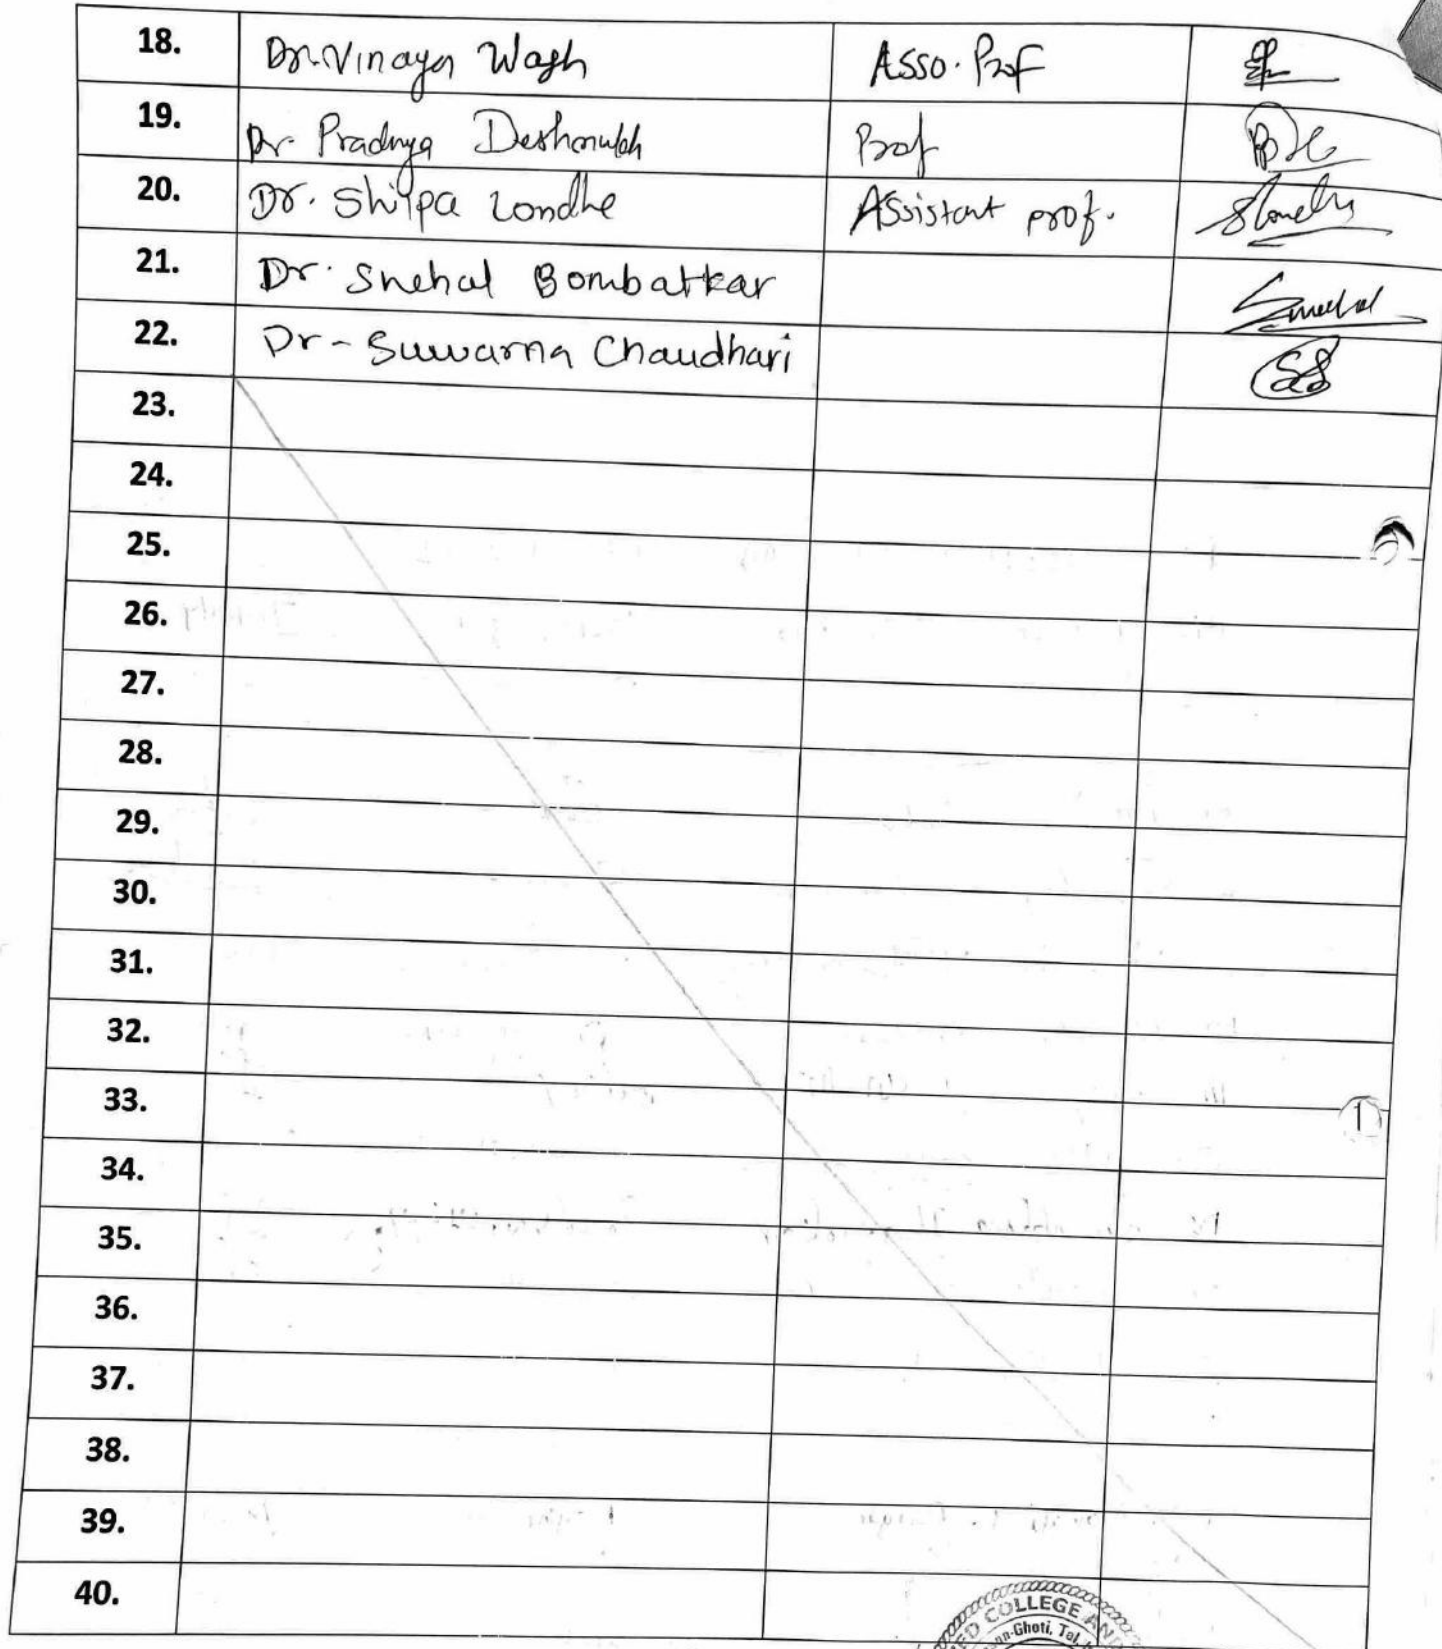 18. Dr. Vinaya Wagh Asso. Prof
19. Dr. Pradnya Deshmukh Prof
20. Dr. Shilpa Londhe Assistant prof.
21. Dr. Snehal Bombatkar Snehal
22. Dr- Suwarna Chaudhari
23.
24.
25.
26.
27.
28.
29.
30.
31.
32.
33.
34.
35.
36.
37.
38.
39.
40.
COLLEGE AND
Ghoti, Tal.